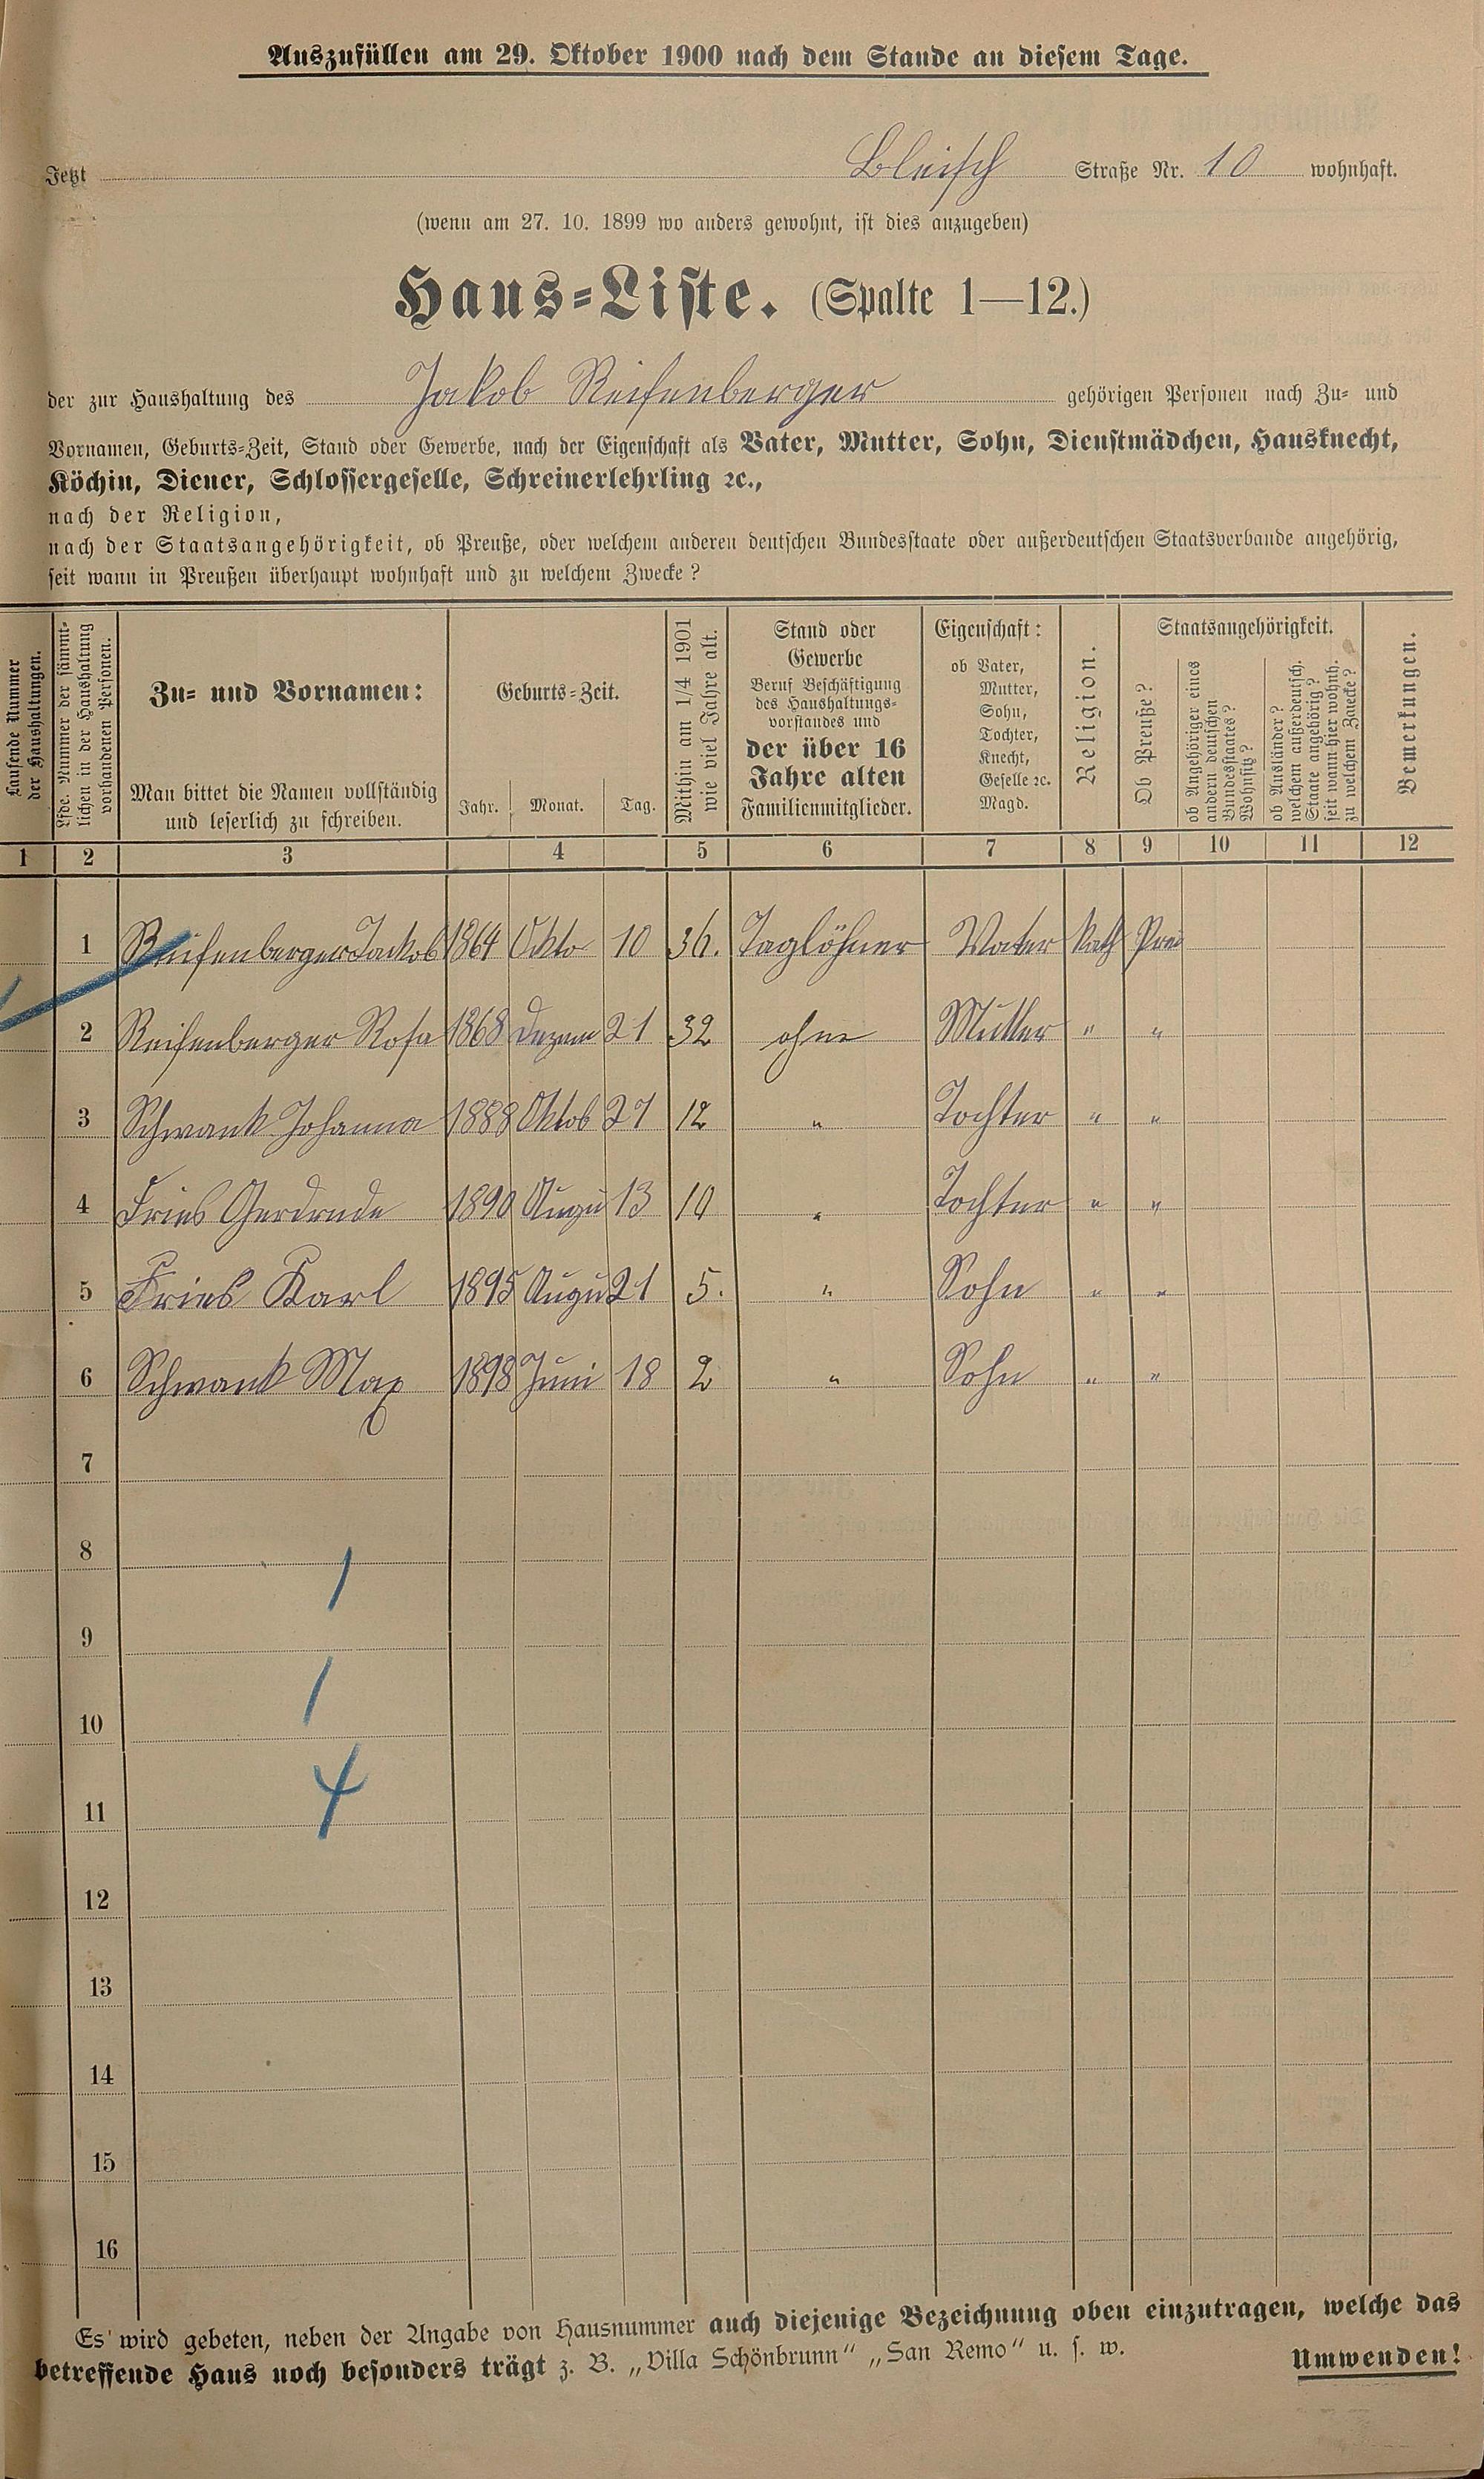 Auszufüllen am 29. Oktober 1900 nach dem Stande an diesem Tage.
Jetzt Bleisch Straße Nr. 10 wohnhaft.
(wenn am 27. 10. 1899 wo anders gewohnt, ist dies anzugeben)
Haus-Liste. (Spalte 1—12.)
der zur Haushaltung des Jakob Reifenberger gehörigen Personen nach Zu- und
Vornamen, Geburts-Zeit, Stand oder Gewerbe, nach der Eigenschaft als Vater, Mutter, Sohn, Dienstmädchen, Hausknecht,
Köchin, Diener, Schlossergeselle, Schreinerlehrling ꝛc.,
nach der Religion,
nach der Staatsangehörigkeit, ob Preuße, oder welchem anderen deutschen Bundesstaate oder außerdeutschen Staatsverbande angehörig,
seit wann in Preußen überhaupt wohnhaft und zu welchem Zwecke?
Laufende Nummer
der Haushaltungen.
Lfde. Nummer der sämmt-
lichen in der Haushaltung
vorhandenen Personen.
Zu- und Vornamen:
Man bittet die Namen vollständig
und leserlich zu schreiben.
Geburts-Zeit.
Jahr. Monat. Tag.
Mithin am 1/4 1901
wie viel Jahre alt.
Stand oder
Gewerbe
Beruf Beschäftigung
des Haushaltungs-
vorstandes und
der über 16
Jahre alten
Familienmitglieder.
Eigenschaft:
ob Vater,
Mutter,
Sohn,
Tochter,
Knecht,
Geselle ꝛc.
Magd.
Religion.
Staatsangehörigkeit.
Ob Preuße?
ob Angehöriger eines
andern deutschen
Bundesstaates?
Wohnsitz?
ob Ausländer?
welchem außerdeutsch.
Staate angehörig?
seit wann hier wohnh.
zu welchem Zwecke?
Bemerkungen.
1 2 3 4 5 6 7 8 9 10 11 12
1 Reifenberger Jackob 1864 Okto 10 36. Taglöhner Vater kath Preu
2 Reifenberger Rosa 1868 Dezem 21 32 ohne Mutter " "
3 Schwank Johanna 1888 Oktob 27 12 " Tochter " "
4 Fries Gerdrude 1890 Augu 13 10 " Tochter " "
5 Fries Karl 1895 Augu 21 5. " Sohn " "
6 Schwank Max 1898 Juni 18 2 " Sohn " "
7
8
1
9
1
10
4
11
12
13
14
15
16
Es wird gebeten, neben der Angabe von Hausnummer auch diejenige Bezeichnung oben einzutragen, welche das
betreffende Haus noch besonders trägt z. B. „Villa Schönbrunn“ „San Remo“ u. s. w. Umwenden!